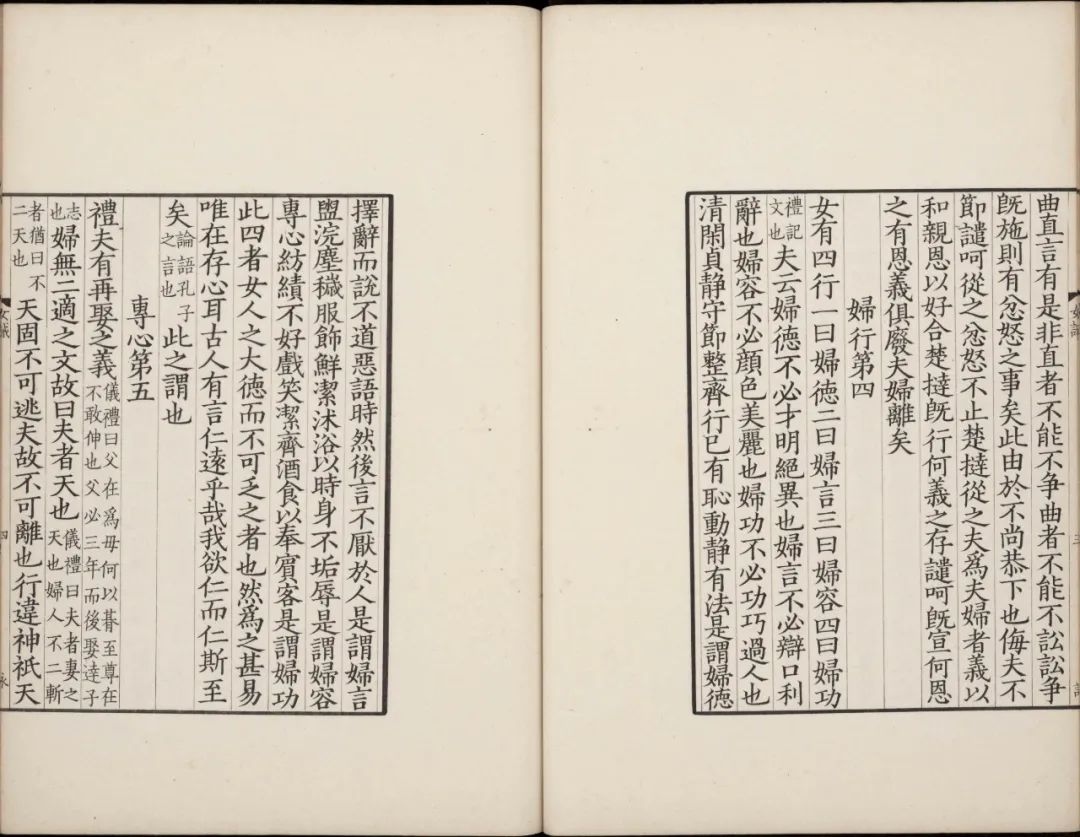 曲直言有是非直者不能不争曲者不能不訟訟争
旣施則有忿怒之事矣此由於不尚恭下也侮夫不
節譴呵從之忿怒不止楚撻從之夫爲夫婦者義以
和親恩以好合楚撻旣行何義之存譴呵旣宣何恩
之有恩義俱廢夫婦離矣
婦行第四
女有四行一曰婦德二曰婦言三曰婦容四曰婦功
禮記
文也
夫云婦德不必才明絕異也婦言不必辯口利
辭也婦容不必顔色美麗也婦功不必功巧過人也
清閑貞静守節整齊行已有恥動静有法是謂婦德
擇辭而說不道惡語時然後言不厭於人是謂婦言
盥浣塵穢服飾鮮潔沐浴以時身不垢辱是謂婦容
專心紡績不好戲笑潔齊酒食以奉賓客是謂婦功
此四者女人之大德而不可乏之者也然爲之甚易
唯在存心耳古人有言仁遠乎哉我欲仁而仁斯至
矣
論語孔子
之言也
此之謂也
專心第五
禮夫有再娶之義
儀禮曰父在爲母何以朞至尊在
不敢伸也父必三年而後娶達子
志
也
婦無二適之文故曰夫者天也
儀禮曰夫者妻之
天也婦人不二斬
者猶曰不
二天也
天固不可逃夫故不可離也行違神祇天